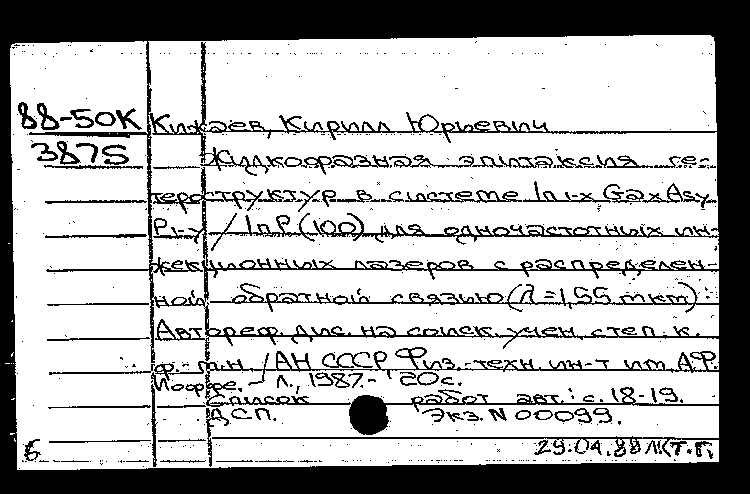 88-50К
3875
Кижаев, Кирилл Юрьевич
Жидкофазная эпитаксия ге-
тероструктур в системе In1-xGaxAsy
P1-y/InP(100) для одночастотных ин-
жекционных лазеров с распределен-
ной обратной связью (λ=1,55 мкм):
Автореф. дис. на соиск. учен. степ. к.
ф.-м.н. /АН СССР, Физ.-техн. ин-т им. А.Ф.
Иоффе. - Л., 1987. - 20с.
Список работ авт.: с. 18-19.
ДСП. Экз. N 00099.
Б 29.04.88